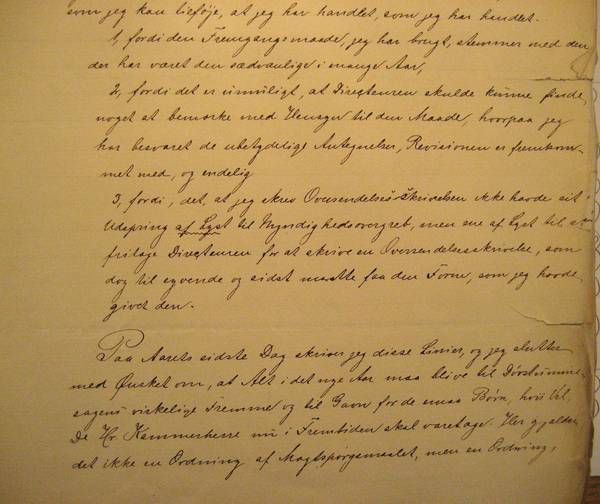 som jeg kan tilføje, at jeg har handlet, som jeg har handlet.
1, fordi den Fremgangsmaade, jeg har brugt, stemmer med den
der har været den sædvanlige i mange Aar,
2, fordi det er umuligt, at Directeuren skulde kunne finde
noget at bemærke med Hensyn til den Maade, hvorpaa jeg
har besvaret de ubetydelige Antegnelser, Revisionen er fremkom-
met med, og endelig
3, fordi, det, at jeg skrev Oversendelsesskrivelsen ikke havde sit
Udspring af Lyst til Myndighedsovergreb, men ene af Lyst til at
fritage Directeuren for at skrive en Oversendelsesskrivelse, som
dog til syvende og sidst maatte faa den Form, som jeg havde
givet den.
Paa Aarets sidste Dag skriver jeg disse Linier, og jeg slutter
med Ønsket om, at Alt i det nye Aar maa blive til
sagens virkelige Fremme og til Gavn for de smaa Børn, hvis Vel,
De Hr. Kammerherre nu i Fremtiden skal varetage. Her gjælder
det ikke en Ordning af Magtspørgsmaalet, men en Ordning,